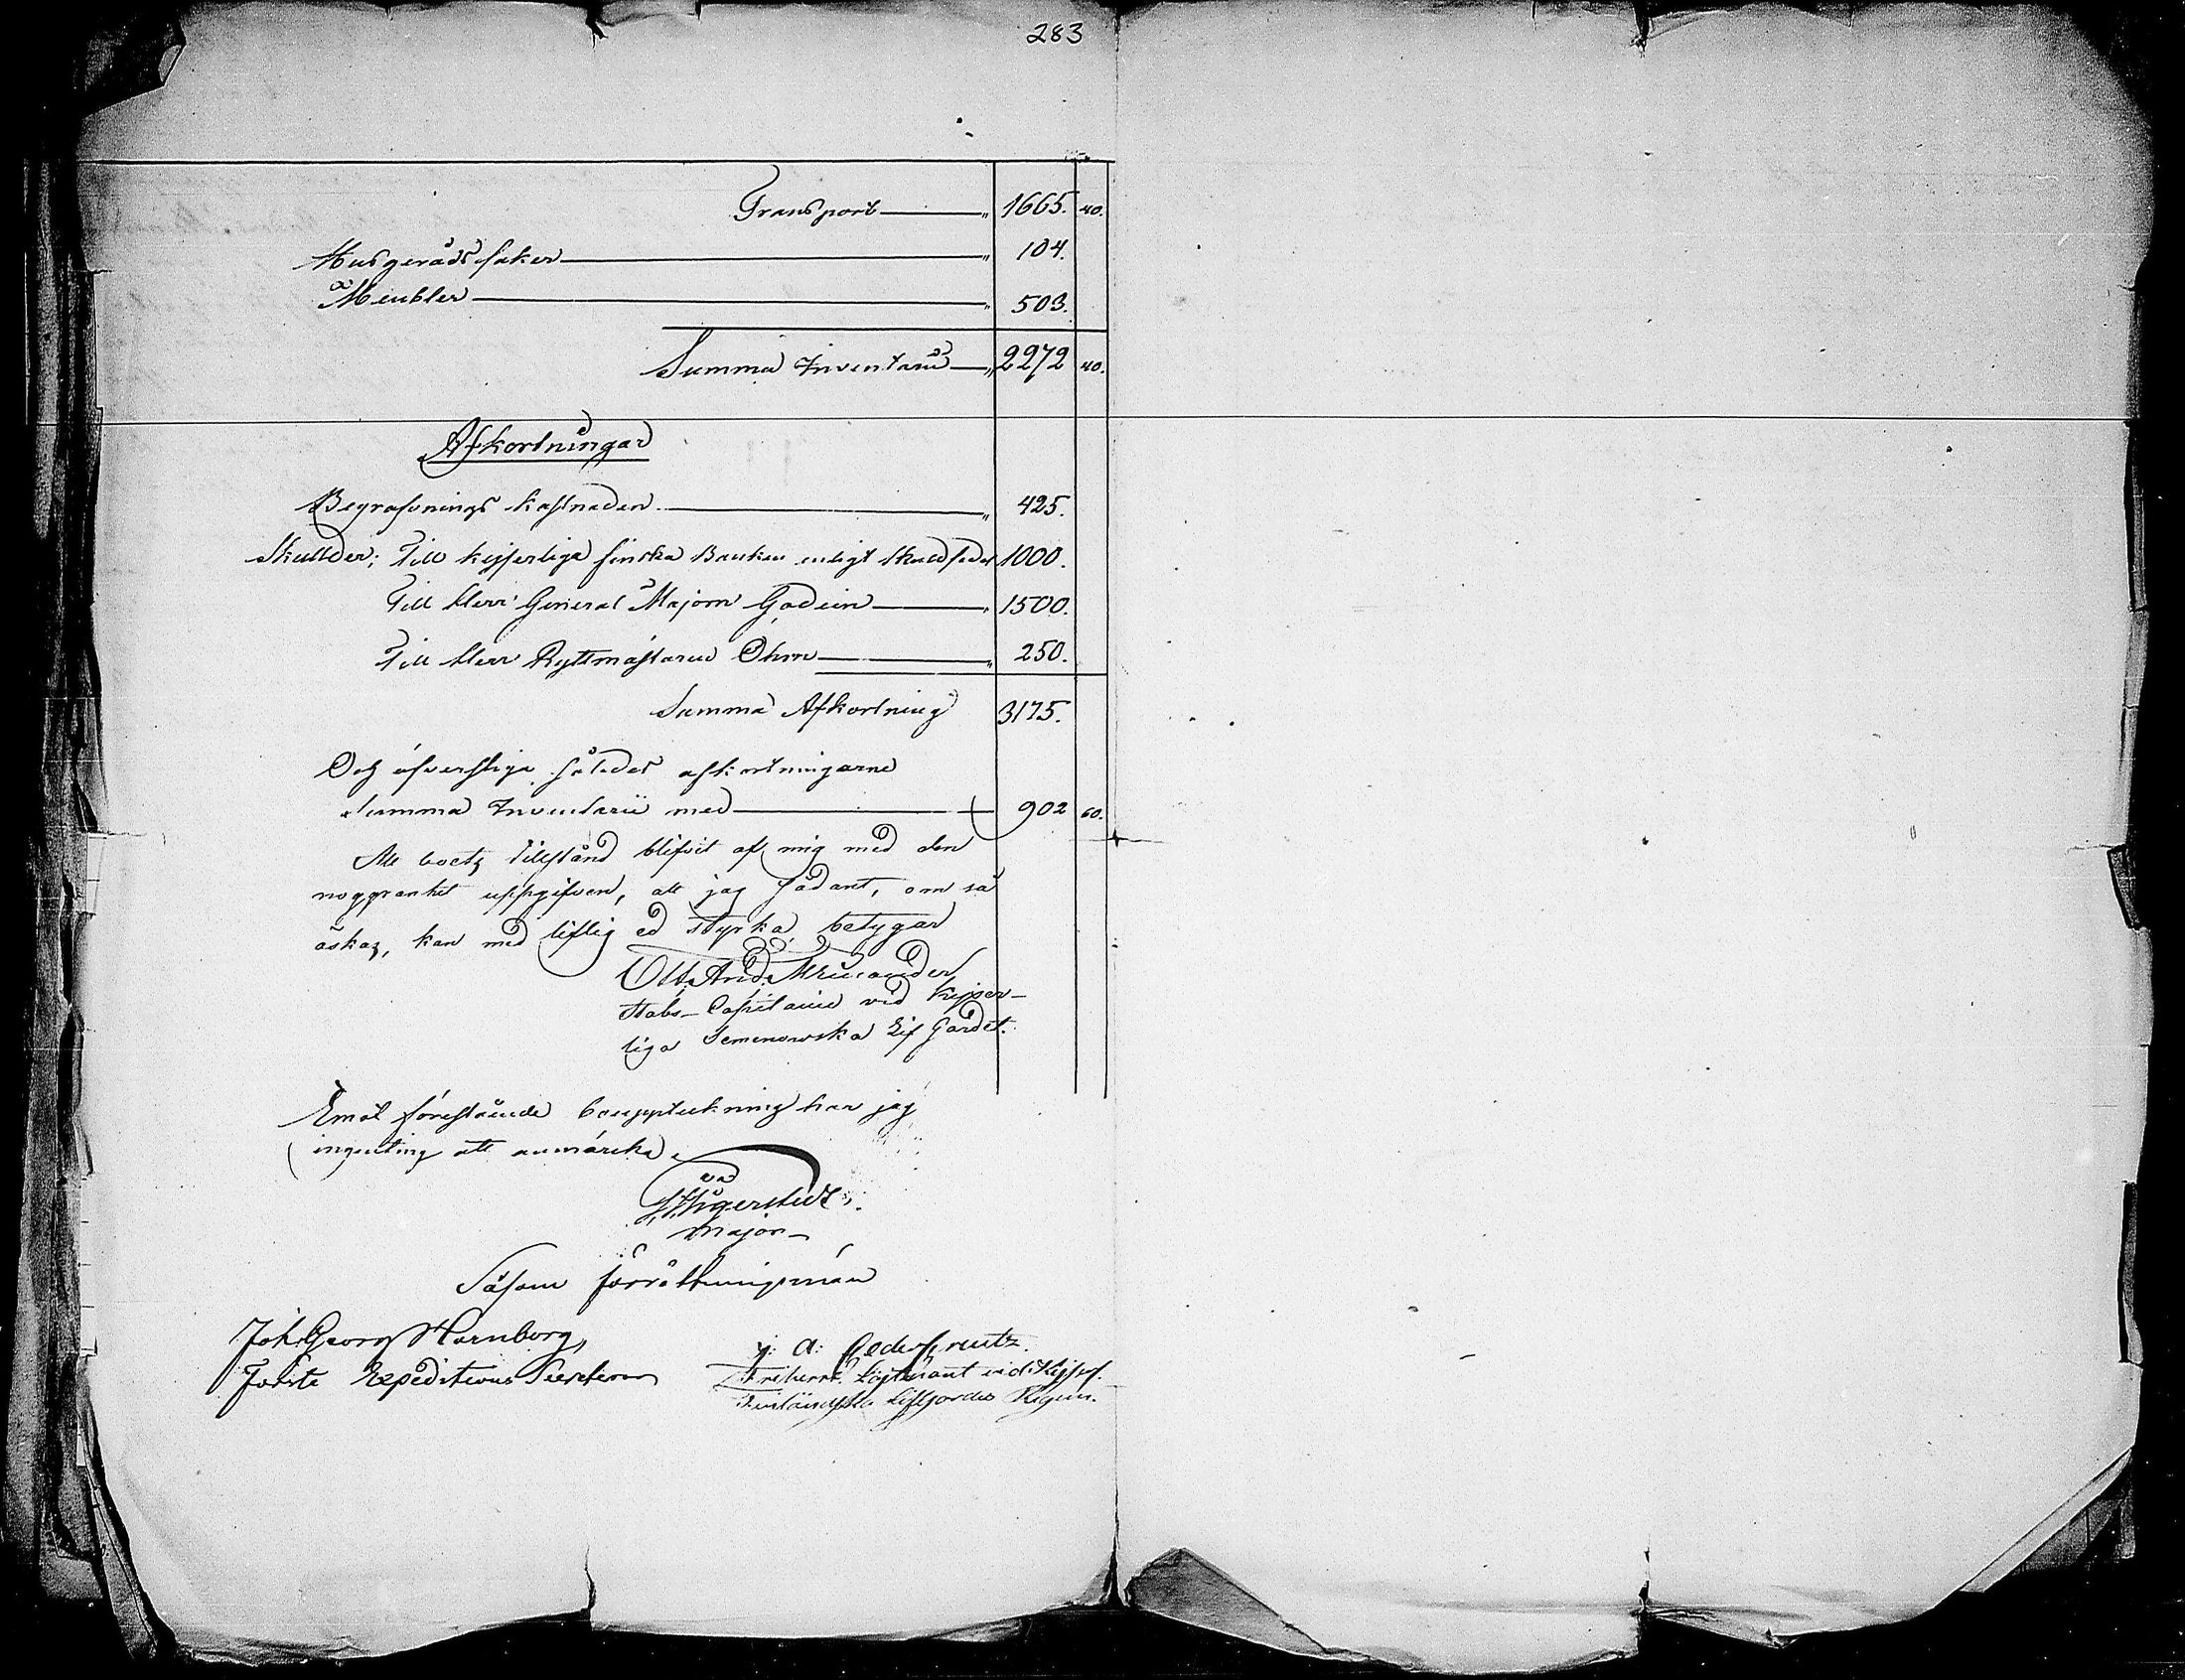 283
Transport — " 1665. 40.
Husgeråds saker — " 104.
Meubler — " 503.
Summa Inventarii — " 2272 40.
Afkortningar
Begrafvnings kostnaden — " 425.
Skullder; Till kejserliga finska Banken enligt skuldsedel 1000.
Till Herr General Majorn Gadein — " 1500.
Till Herr Ryttmästaren Öhm — " 250.
Summa Afkortning 3175.
Och öfverstiga således afkortningarne
Summa Inventarii med — 902 60.
Att boets tillstånd blifvit af mig med den
noggranhet uppgifven, att jag sådant, om så
äskas, kan med liflig ed styrka, betygar
Ott. And.
Stabs-Capitaine vid Kejser-
liga Semenowska Lif Gardet.
Emot förestående bouppteckning har jag
ingenting att anmärcka.
Major
Såsom förrättningsmän
Joh. Georg Hornborg, J: A: Cedercreutz.
Förste Expeditions Secreterare Friherre. Löjtenant vid Kejserl.
Finländska Lifgardes Regem.